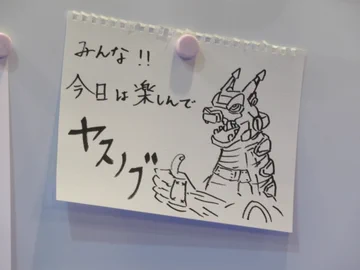 みんな!!
今日は楽しんで
ヤスノブ